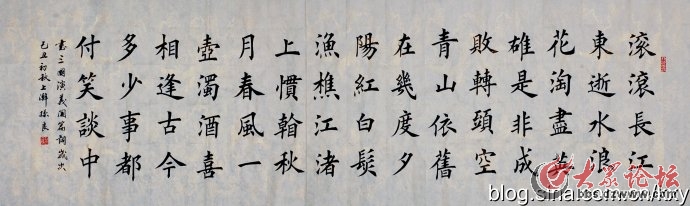 滚滚長江
東逝水浪
花淘盡英
雄是非成
敗轉頭空
青山依舊
在幾度夕
陽紅白髮
漁樵江渚
上慣翰秋
月春風一
壺濁酒喜
相逢古今
多少事都
付笑談中
書三國演義開篇詞歲次
己丑初秋上澣
大众论坛
bbs.dzwww.com